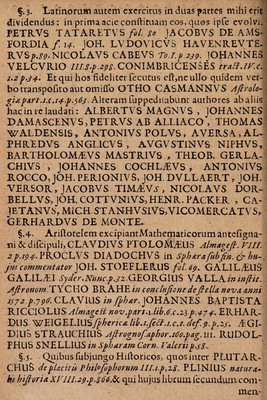 §.3. Latinorum autem exercitus in duas partes mihi erit
dividendus: in prima acie constituam eos, quos ipse evolvi.
PETRUS TATARETUS fol. 80 JACOBUS DE AMS-
FORDIA f. 14. JOH. LVDOVICUS HAVENREUTE-
RUS p. 89. NICOLAUS CABEUS To. I. p. 299. JOHANNES
VELCURIO 118. p. 293. CONIMBRICENSES tract. IV. c.
1. 2 p. 34. Et qui hos fideliter secutus est, ne ullo quidem ver-
bo transposito aut omisso OTHO CASMANNUS Astrolo-
gia part. 1. c. 14. p. 563. Alteram suppeditabunt authores ab aliis
hac in re laudati: ALBERTUS MAGNUS, JOHANNES
DAMASCENUS, PETRUS AB ALLIACO, THOMAS
WALDENSIS, ANTONIUS POLUS, AVERSA, AL-
PHREDUS ANGLICUS, AUGUSTINUS NIPHUS,
BARTHOLOMÆUS MASTRIUS, THEOB. GERLA-
CHIUS, JOHANNES COCHLÆUS, ANTONIUS
ROCCO, JOH. PERIONIUS, JOH. DULLAERT, JOH.
VERSOR, JACOBUS TIMÆUS, NICOLAUS DOR-
BELLUS, JOH. COTTVNIUS, HENR. PACKER, CA-
JETANUS, MICH. STANHVSIUS, VICOMERCATUS,
GERHARDUS DE MONTE.
§.4. Aristotelem excipiant Mathematicorum antesigna-
ni & discipuli, CLAUDIUS PTOLOMÆUS Almagest. VIII.
2 p. 194. PROCLUS DIADOCHUS in Sphæra sub fin. & hu-
jus commentator JOH. STOEFLERUS fol. 90. GALILÆUS
GALILÆI Syder. Nunc. p. 12. GEORGIUS VALLA in instit.
Astronom. TYCHO BRAHE in conclusione de stella nova anni
1572 p. 796. CLAVIUS in sphær. JOHANNES BAPTISTA
RICCIOLUS Almagest nov. part. 1. lib. 6. c. 23. p. 474. ERHAR-
DUS WEIGELIUS sphærica lib. 1. sect. 1. c. 1. def. 9. p. 25. ÆGI-
DIUS STRAUCHIUS Astrognos. aphor. 160. pag. 111. RUDOL-
PHUS SNELLIUS in Sphæram Corn. Valerii p. 58.
§.5. Quibus subjungo Historicos, quos inter PLUTAR-
CHUS de placitis Philosophorum III. 1. p. 28. PLINIUS natura-
li historia XVIII. 29. p. 566. & qui hujus librum secundum com-
men-